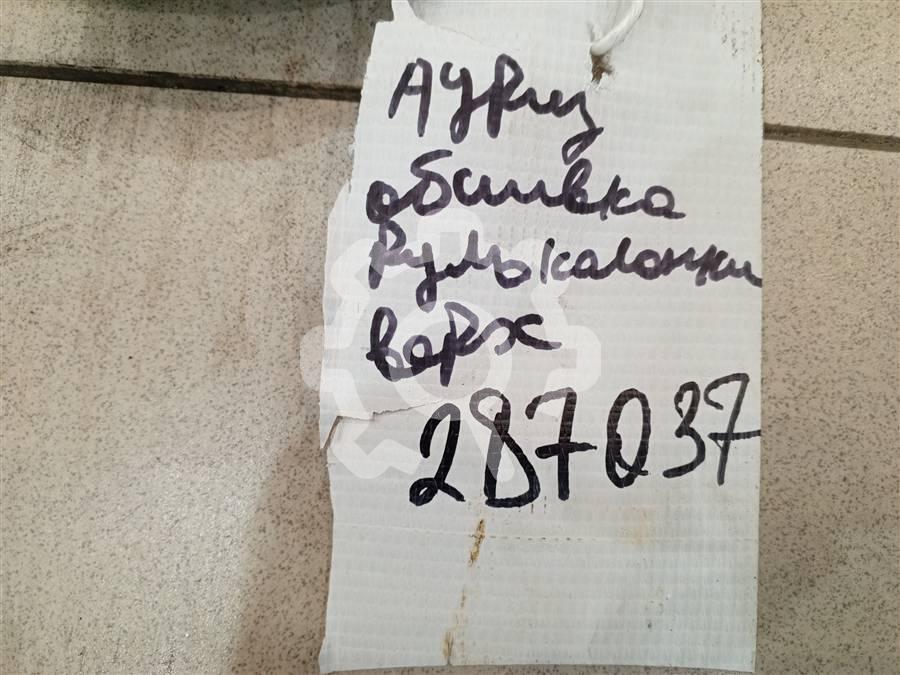 Ауриц
обшивка
рульколонки
верх
287037